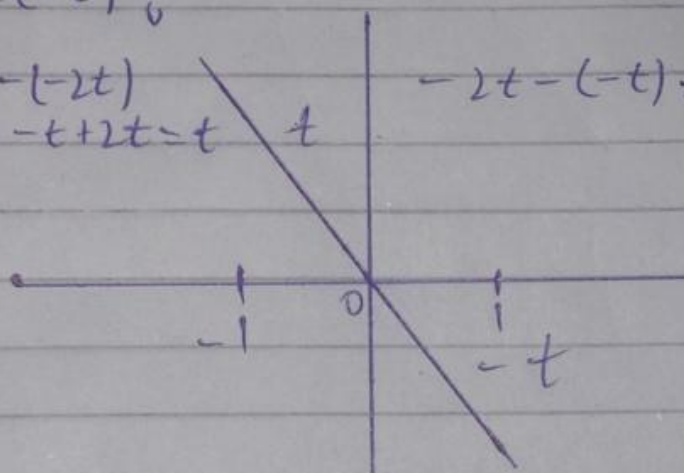 -(-2t)
-2t-(-t)
-t+2t=t
t
0
-1
1
-t